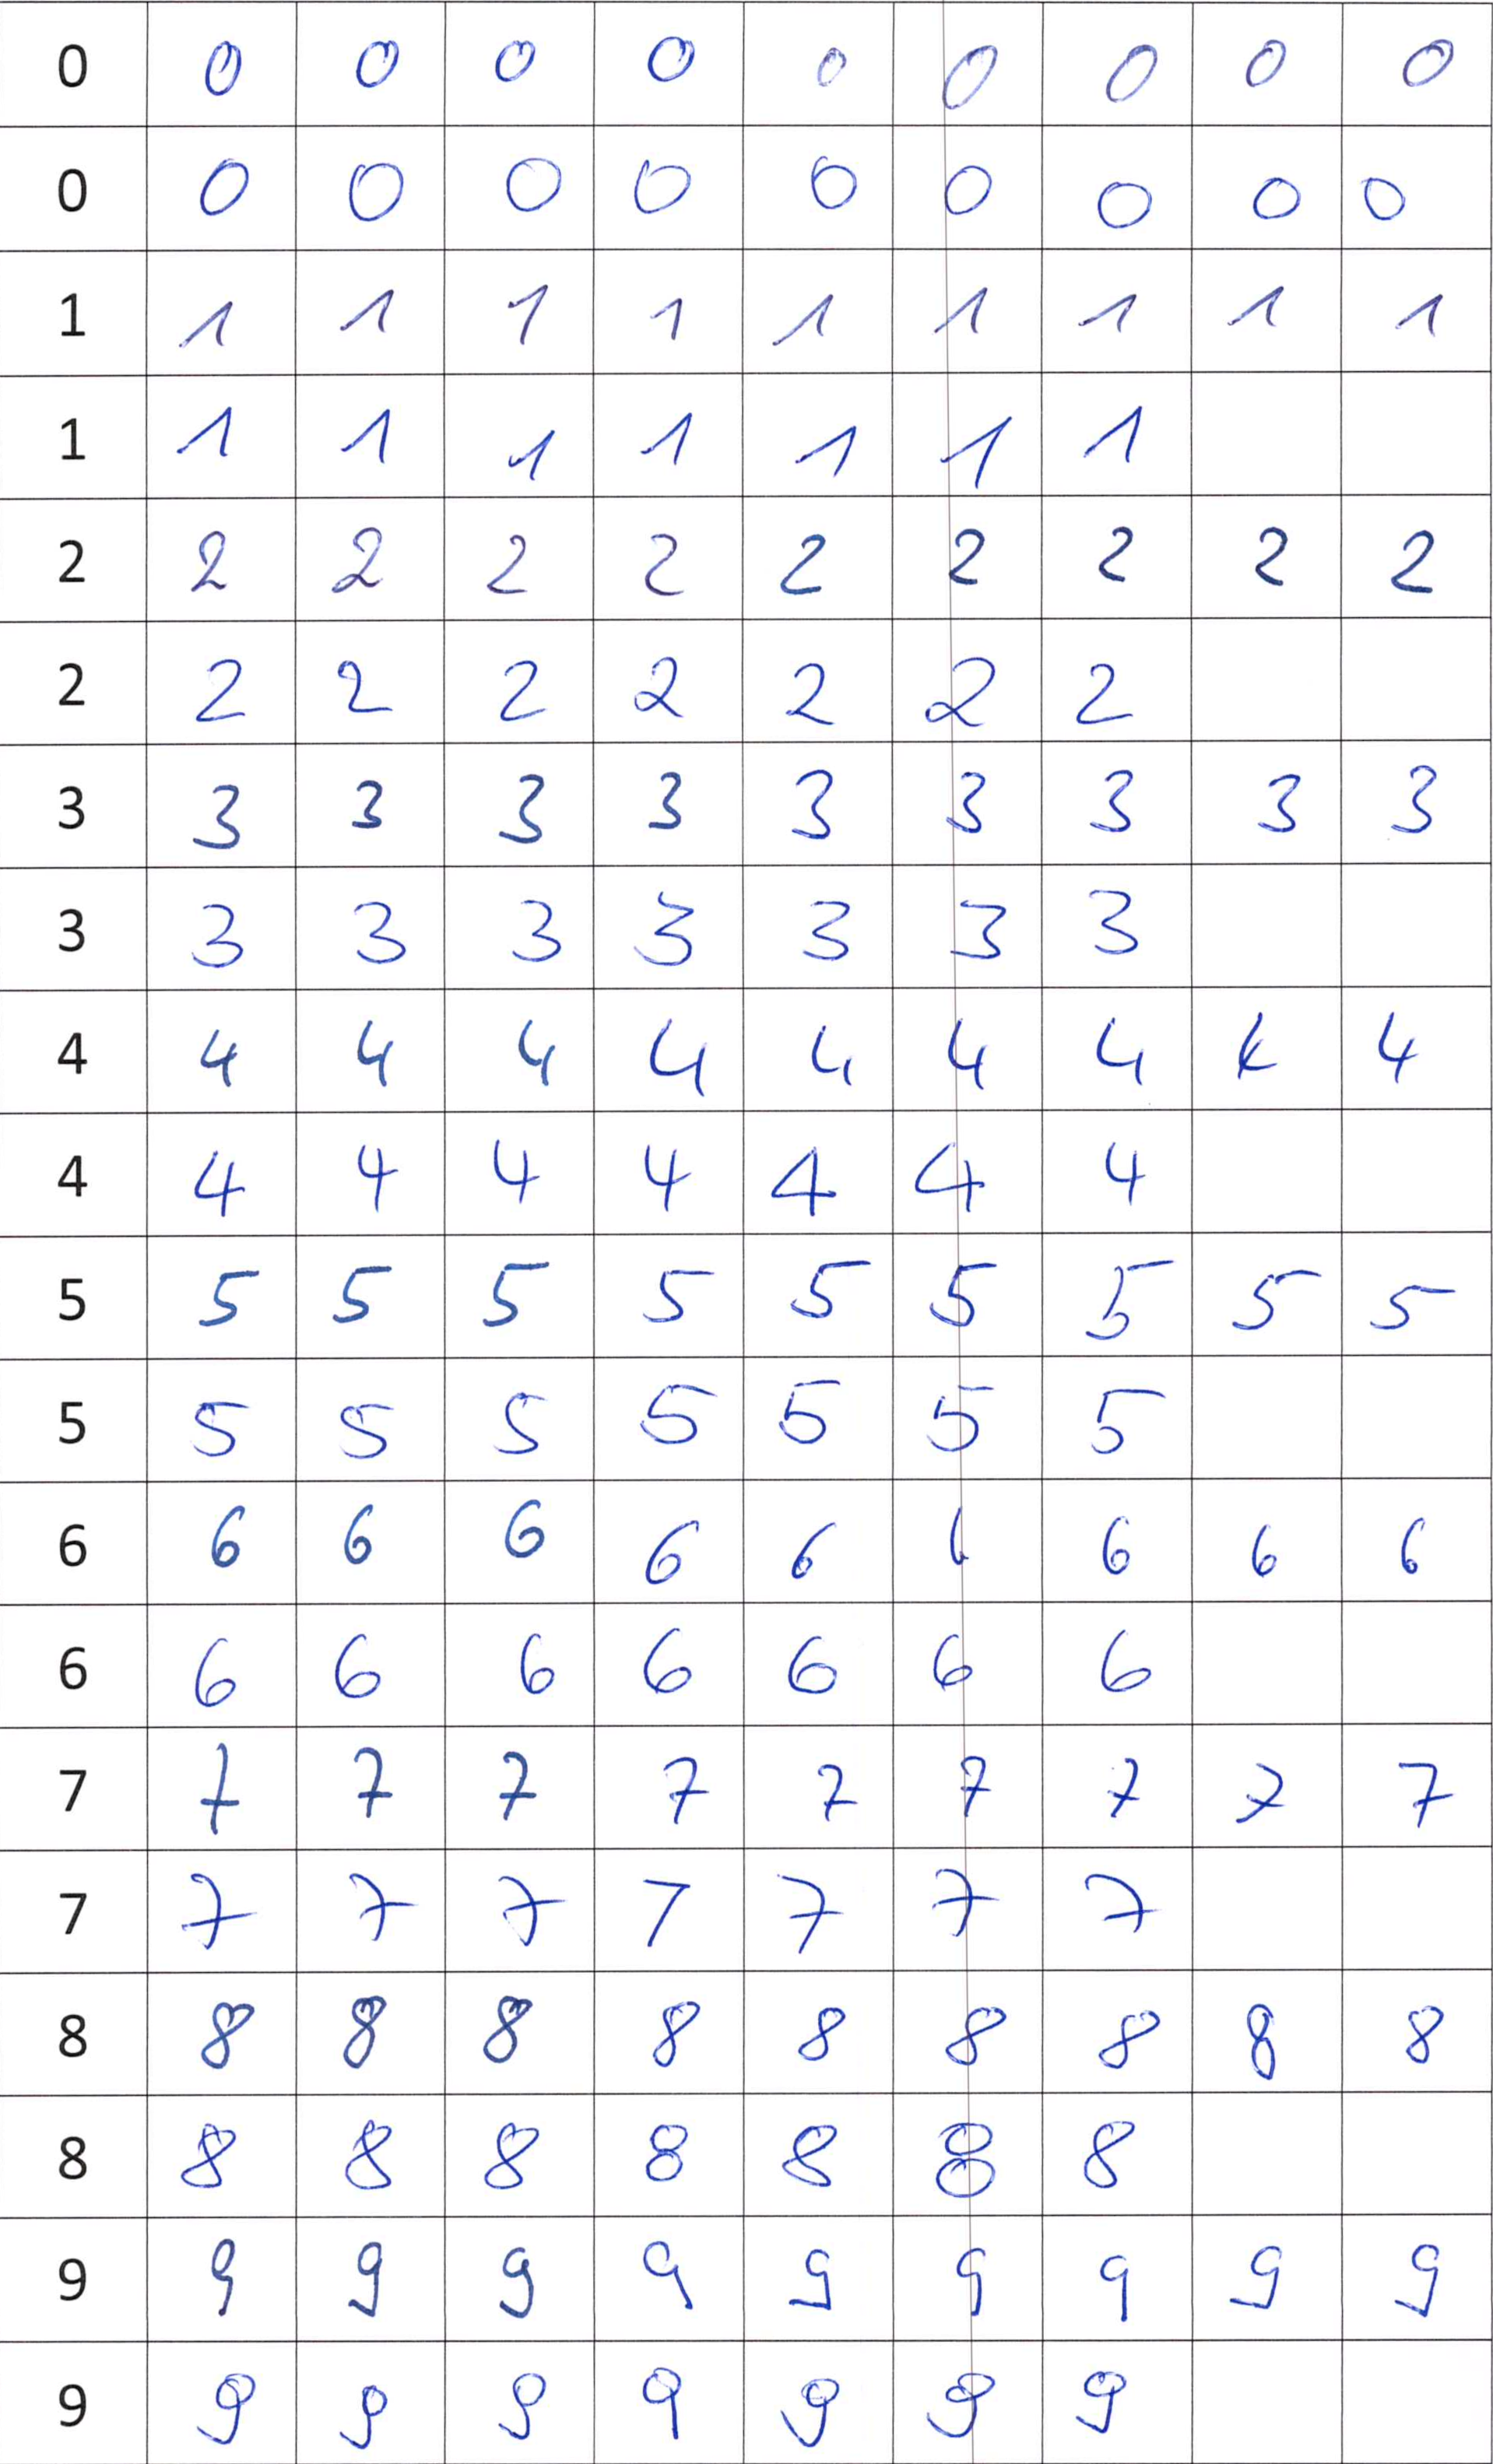 0 0 0 0 0 0 0 0 0 0
0 0 0 0 0 0 0 0 0 0
1 1 1 1 1 1 1 1 1 1
1 1 1 1 1 1 1 1
2 2 2 2 2 2 2 2 2 2
2 2 2 2 2 2 2 2
3 3 3 3 3 3 3 3 3 3
3 3 3 3 3 3 3 3
4 4 4 4 4 4 4 4 4 4
4 4 4 4 4 4 4 4
5 5 5 5 5 5 5 5 5 5
5 5 5 5 5 5 5 5
6 6 6 6 6 6 6 6 6 6
6 6 6 6 6 6 6 6
7 7 7 7 7 7 7 7 7 7
7 7 7 7 7 7 7 7
8 8 8 8 8 8 8 8 8 8
8 8 8 8 8 8 8 8
9 9 9 9 9 9 9 9 9 9
9 9 9 9 9 9 9 9